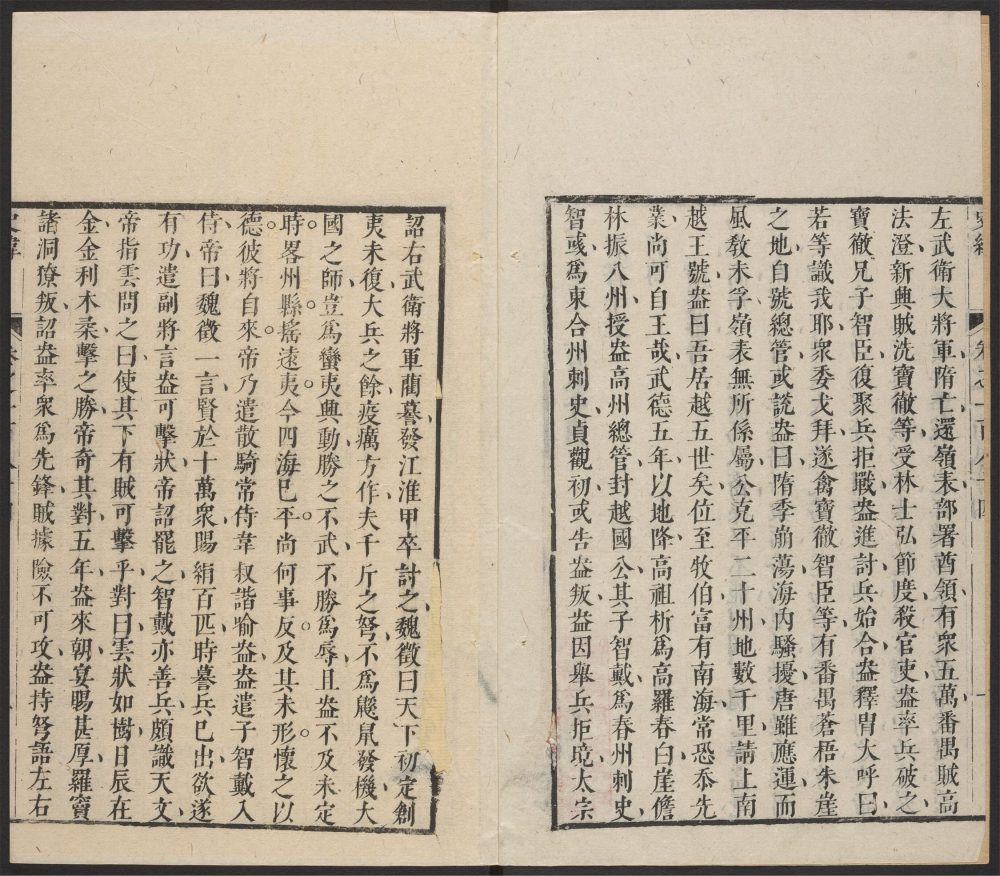 左武衛大將軍隋亡還嶺表部署酋領有衆五萬番禺賊高
法澄新興賊洗寶徹等受林士弘節度殺官吏盎率兵破之
寶徹兄子智臣復聚兵拒戰盎進討兵始合盎釋胄大呼曰
若等識我耶衆委戈拜遂禽寶徹智臣等有番禺蒼梧朱崖
之地自號總管或說盎曰隋季崩蕩海內騷擾唐雖應運而
風敎未孚嶺表無所係屬公克平二十州地數千里請上南
越王號盎曰吾居越五世矣位至牧伯富有南海常恐忝先
業尚可自王哉武德五年以地降高祖析爲高羅春白崖儋
林振八州授盎高州總管封越國公其子智戴爲春州刺史
智彧爲東合州刺史貞觀初或告盎叛盎因舉兵拒境太宗
詔右武衛將軍藺謩發江淮甲卒討之魏徵曰天下初定創
夷未復大兵之餘疫癘方作夫千斤之弩不爲鼷鼠發機大
國之師豈爲蠻夷興動勝之不武不勝爲辱且盎不及未定
時畧州縣搖遠夷今四海已平尚何事反及其未形懷之以
德彼將自來帝乃遣散騎常侍韋叔諧喻盎盎遣子智戴入
侍帝曰魏徵一言賢於十萬衆賜絹百匹時謩兵已出欲遂
有功遣副將言盎可擊狀帝詔罷之智戴亦善兵頗識天文
帝指雲問之曰使其下有賊可擊乎對曰雲狀如樹日辰在
金金利木柔擊之勝帝奇其對五年盎來朝宴賜甚厚羅竇
諸洞獠叛詔盎率衆爲先鋒賊據險不可攻盎持弩語左右